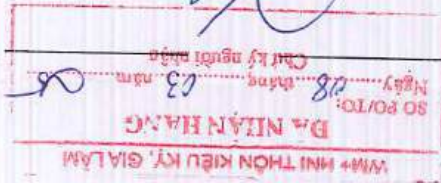 WM+ HNI THÔN KIÊU KỴ, GIA LÂM
ĐÃ NHẬN HÀNG
SO PO/TO:
Ngày 08 tháng 03 năm 25
Chữ ký người nhận